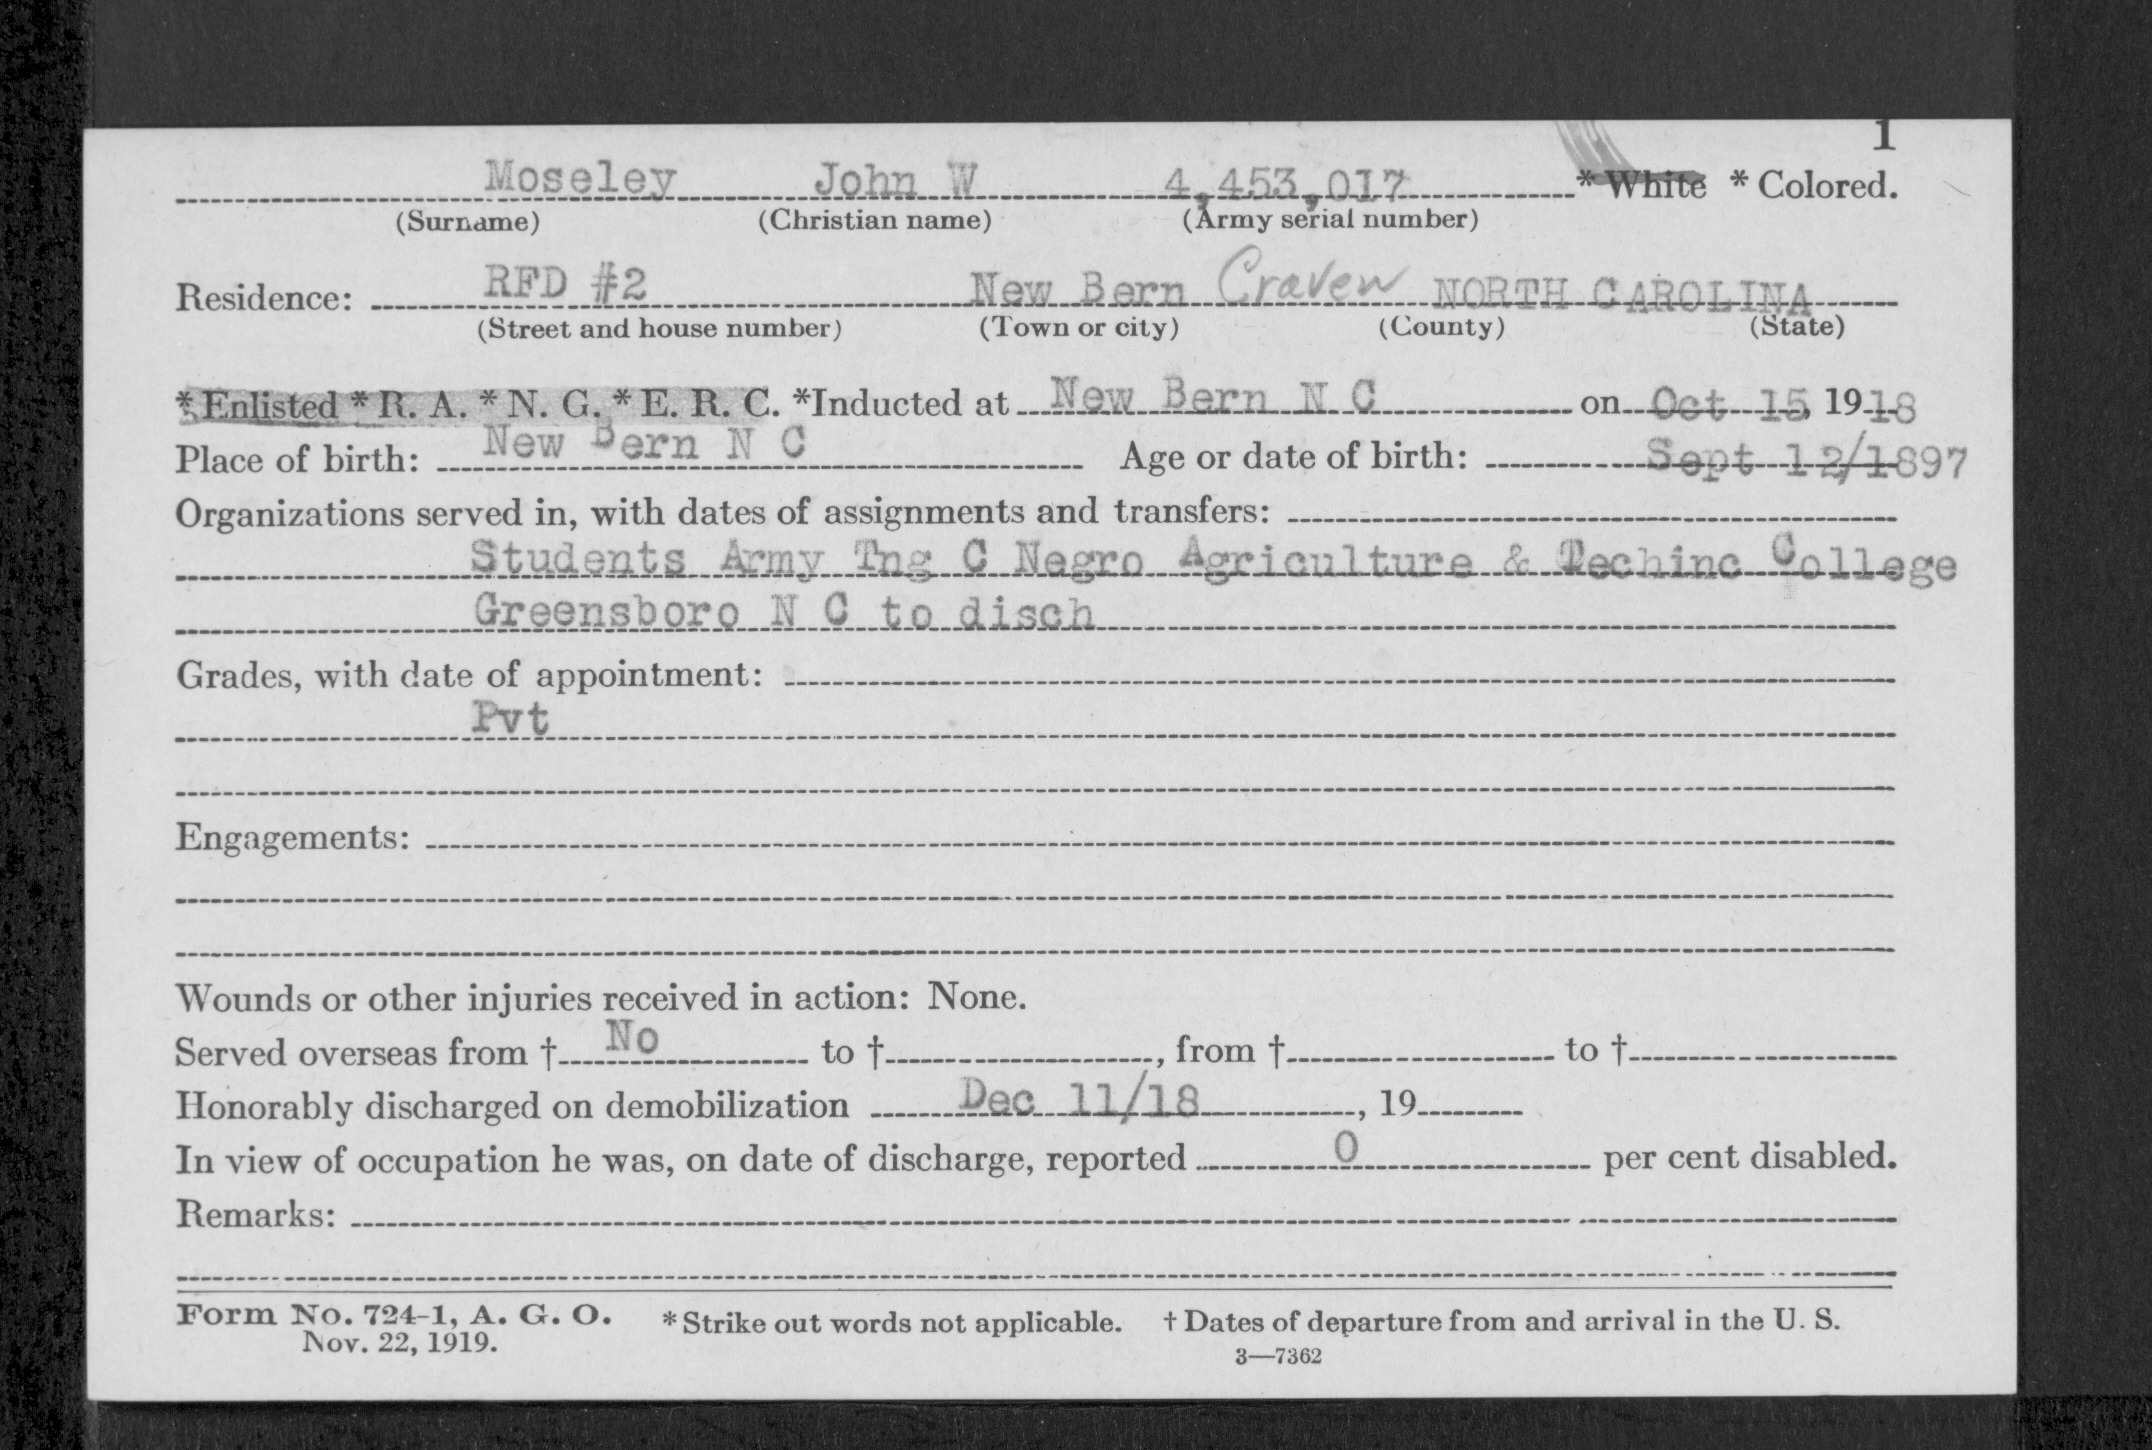 1
Moseley John W 4,453,017 * White * Colored.
(Surname) (Christian name) (Army serial number)
Residence: RFD #2 New Bern Craven NORTH CAROLINA
(Street and house number) (Town or city) (County) (State)
* Enlisted * R. A. * N. G. * E. R. C. *Inducted at New Bern N C on Oct 15, 1918
Place of birth: New Bern N C Age or date of birth: Sept 12/1897
Organizations served in, with dates of assignments and transfers:
Students Army Tng C Negro Agriculture & Techinc College
Greensboro N C to disch
Grades, with date of appointment:
Pvt
Engagements:
Wounds or other injuries received in action: None.
Served overseas from † No to †, from † to †
Honorably discharged on demobilization Dec 11/18, 19
In view of occupation he was, on date of discharge, reported 0 per cent disabled.
Remarks:
Form No. 724-1, A. G. O. * Strike out words not applicable. † Dates of departure from and arrival in the U. S.
Nov. 22, 1919.
3—7362